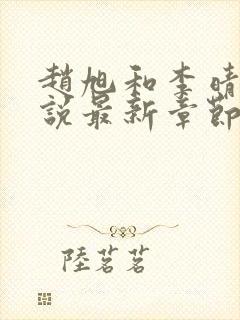 趙旭和李晴
說最新章節
陸茗茗